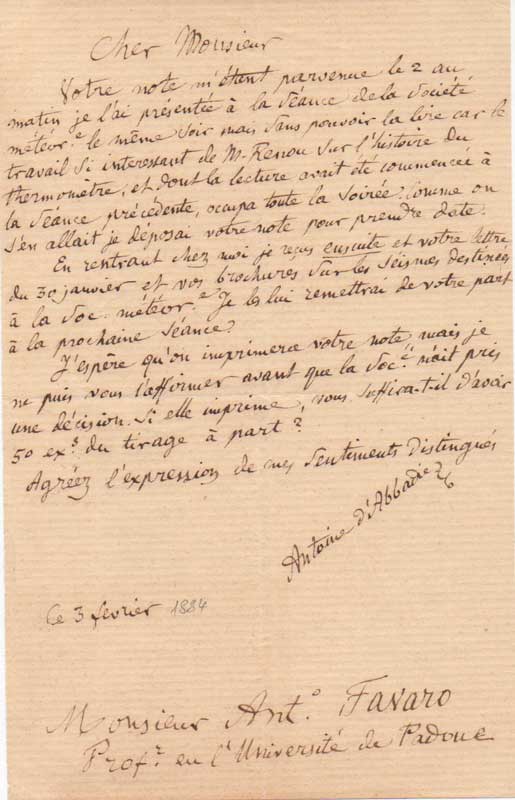 Cher Monsieur
Votre note m'étant parvenue le 2 au
matin je l'ai présentée à la séance de la Société
météor.e le même soir mais sans pouvoir la lire car le
travail si interessant de M. Renou sur l'histoire du
thermomètre, et dont la lecture avait été commencée à
la séance précédente, occupa toute la soirée. Comme on
s'en allait je déposai votre note pour prendre date.
En rentrant chez moi je reçus ensuite et votre lettre
du 30 janvier et vos brochures sur les séismes destinées
à la Soc. météor.e Je les lui remettrai de votre part
à la prochaine séance.
J'espère qu'on imprimera votre note, mais je
ne puis vous l'affirmer avant que la Soc.é n'ait pris
une décision. Si elle imprime, vous suffira-t-il d'avoir
50 ex.s du tirage à part ?
Agréez l'expression de mes sentiments distingués
Antoine d'Abbadie
Ce 3 fevrier 1884
Monsieur Ant.o Favaro
Prof.r en l'Université de Padoue